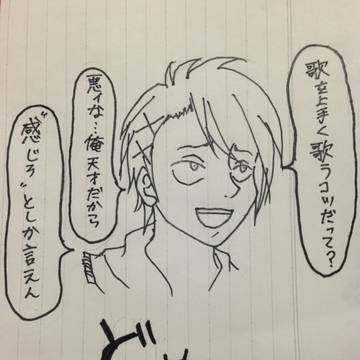 歌を上手く歌うコツだって?
悪ィな…俺天才だから
“感じろ”としか言えん
ど